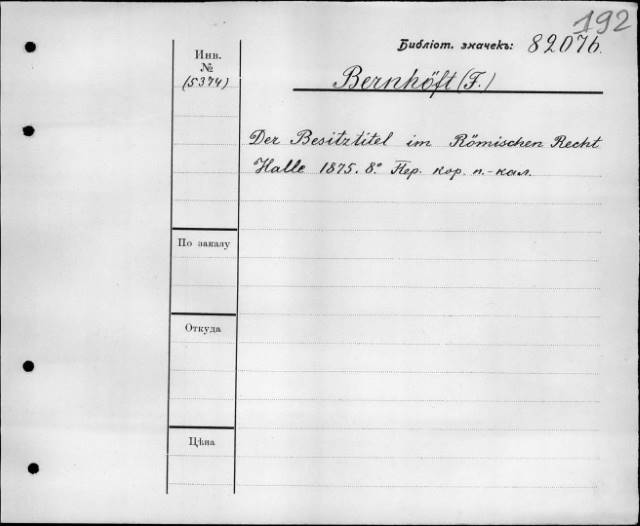 192
Библіот. значекъ: 82076.
Инв.
№
(5374)
Bernhöft (F.)
Der Besitztitel im Römischen Recht
Halle 1875. 8.° Пер. кор. п.-кал.
По заказу
Откуда
Цѣна